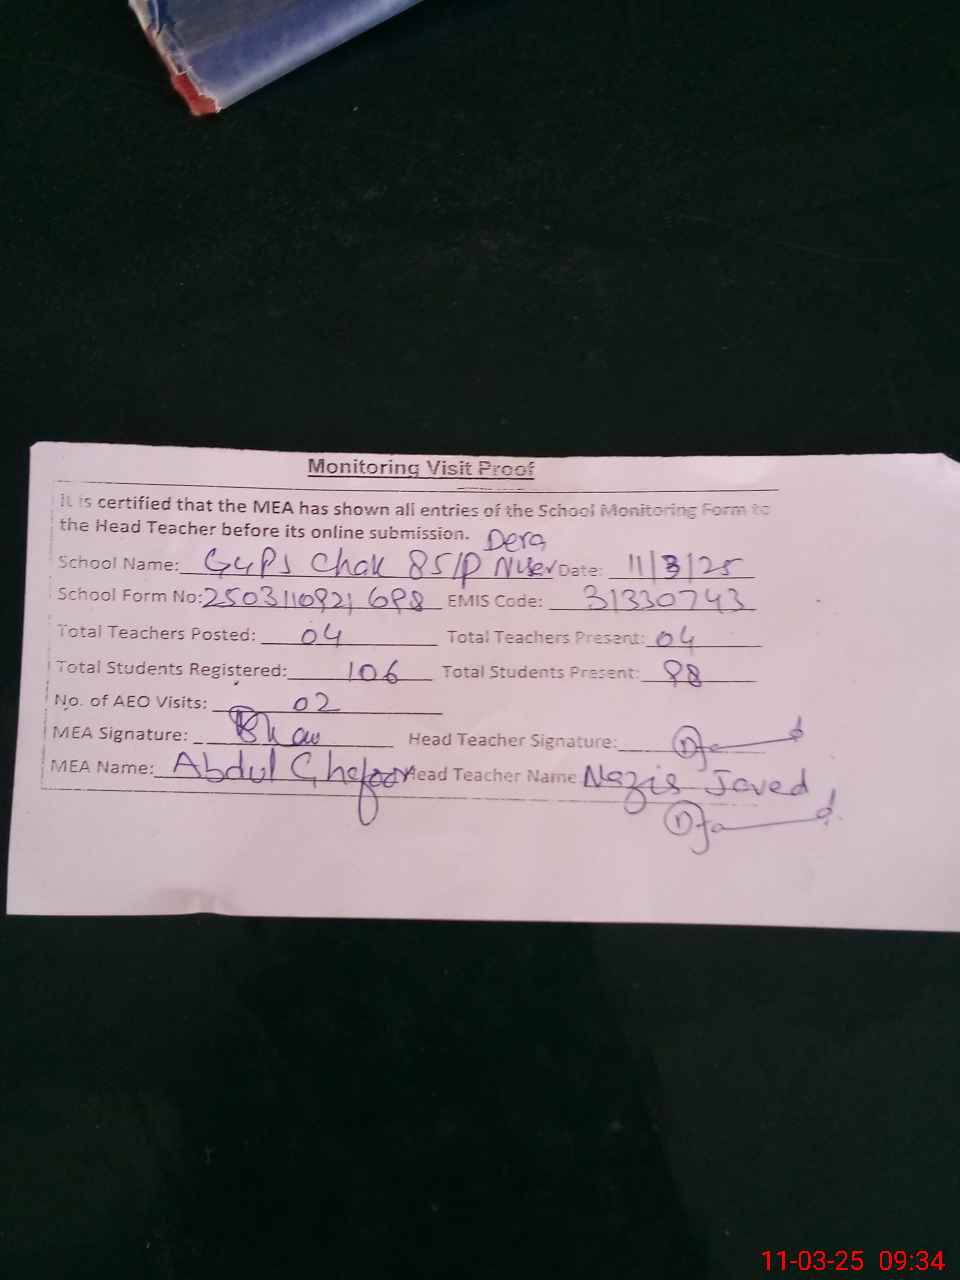 Monitoring Visit Proof
It is certified that the MEA has shown all entries of the School Monitoring Form to
the Head Teacher before its online submission.
Dera
School Name: GGPS Chak 85/P Date: 11/3/25
School Form No: EMIS Code: 31330743
Total Teachers Posted: 04 Total Teachers Present: 04
Total Students Registered: 106 Total Students Present: 98
No. of AEO Visits: 02
MEA Signature: Head Teacher Signature:
MEA Name: Abdul Ghafoor Head Teacher Name Javed
11-03-25 09:34